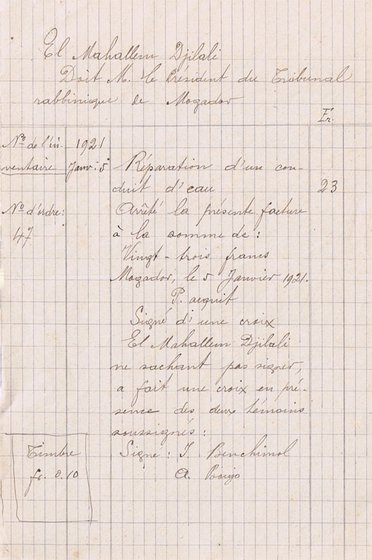 El Mahallem Djilali
Doit M. le Président du Tribunal
rabbinique de Mogador
Fr.
N° de l'in-
ventaire
1921
Janv. 5
Réparation d'un con-
duit d'eau
23
N° d'ordre:
47
Arrêté la présente facture
à la somme de:
Vingt-trois francs
Mogador, le 5 Janvier 1921.
P. acquit
Signé d'une croix
El Mahallem Djilali
ne sachant pas signer,
a fait une croix en pré-
sence des deux témoins
soussignés:
Signé: J. Benchimol
A.
Timbre
fr. 0.10